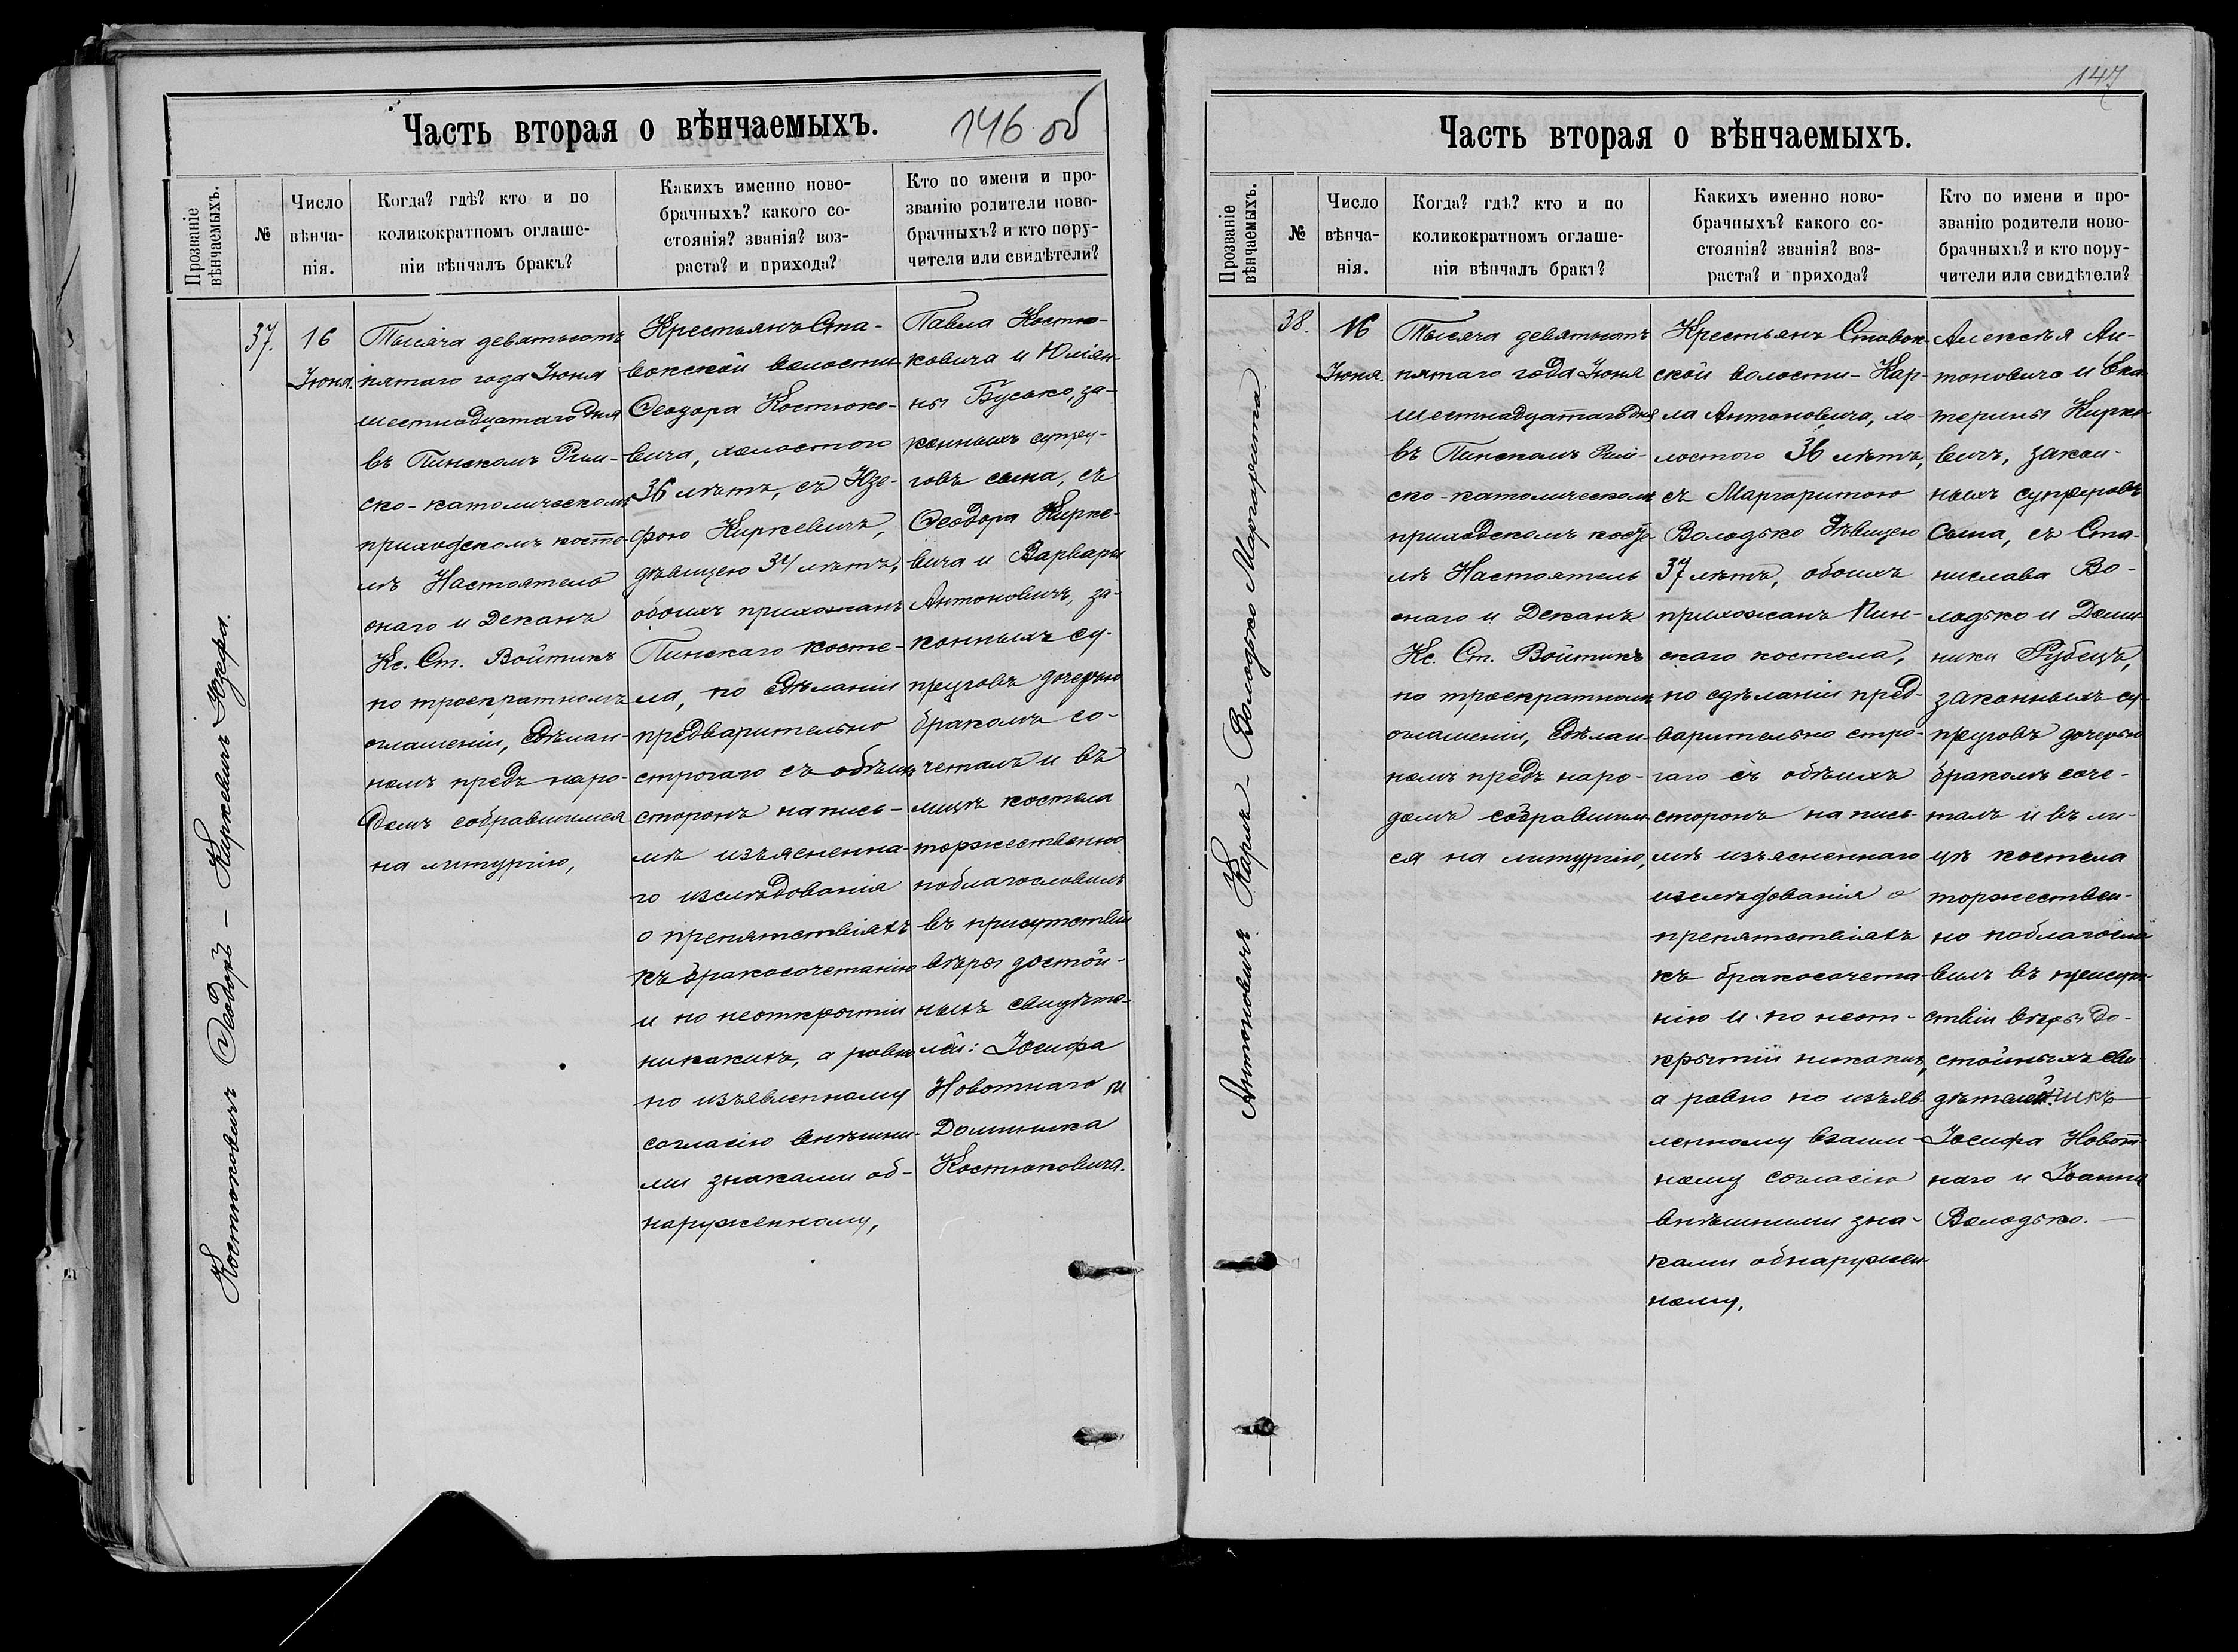 Часть вторая о вѣнчаемыхъ.
146 об
Прозваніе
вѣнчаемыхъ.
№
Число
вѣнча-
нія.
Когда? гдѣ? кто и по
коликократномъ оглаше-
ніи вѣнчалъ бракъ?
Какихъ именно ново-
брачныхъ? какого со-
стоянія? званія? воз-
раста? и прихода?
Кто по имени и про-
званію родители ново-
брачныхъ? и кто пору-
чители или свидѣтели?
Костюковичъ Ѳеодоръ – Киркевичъ Юзефа.
37.
16
Іюня.
Тысяча девятьсотъ
пятаго года Іюня
шестнадцатаго дня
въ Пинскомъ Рим-
ско-католическомъ
приходскомъ косте-
лѣ Настоятель
онаго и Деканъ
Кс. Ст. Войтикъ
по троекратномъ
оглашеніи, сдѣлан-
номъ предъ наро-
домъ собравшимся
на литургію,
Крестьянъ Ста-
вокской волости
Ѳеодора Костюко-
вича, холостого
36 лѣтъ, съ Юзе-
фою Киркевичъ,
дѣвицею 34 лѣтъ,
обоихъ прихожанъ
Пинскаго косте-
ла, по сдѣланіи
предварительно
строгаго съ обѣихъ
сторонъ на пись-
мѣ изъясненна-
го изслѣдованія
о препятствіяхъ
къ бракосочетанію
и по неоткрытіи
никакихъ, а равно
по изъявленному
согласію внѣшни-
ми знаками об-
наруженному,
Павла Костю-
ковича и Юліан-
ны Бусько, за-
конныхъ супру-
говъ сына, съ
Ѳеодора Кирке-
вича и Варвары
Антоновичъ, за-
конныхъ су-
пруговъ дочерью
бракомъ со-
четалъ и въ
лицѣ костела
торжественно
поблагословилъ
въ присутствіи
вѣры достой-
ныхъ свидѣте-
лей: Іосифа
Новотнаго и
Доминика
Костюковича.
147
Часть вторая о вѣнчаемыхъ.
Прозваніе
вѣнчаемыхъ.
№
Число
вѣнча-
нія.
Когда? гдѣ? кто и по
коликократномъ оглаше-
ніи вѣнчалъ бракъ?
Какихъ именно ново-
брачныхъ? какого со-
стоянія? званія? воз-
раста? и прихода?
Кто по имени и про-
званію родители ново-
брачныхъ? и кто пору-
чители или свидѣтели?
Антоновичъ Карлъ – Володько Маргарита.
38.
16
Іюня.
Тысяча девятьсотъ
пятаго года Іюня
шестнадцатаго дня
въ Пинскомъ Рим-
ско-католическомъ
приходскомъ косте-
лѣ Настоятель
онаго и Деканъ
Кс. Ст. Войтикъ
по троекратномъ
оглашеніи, сдѣлан-
номъ предъ наро-
домъ собравшим-
ся на литургію,
Крестьянъ Ставок-
ской волости – Кар-
ла Антоновича, хо-
лостого 36 лѣтъ,
съ Маргаритою
Володько дѣвицею
37 лѣтъ, обоихъ
прихожанъ Пин-
скаго костела,
по сдѣланіи пред-
варительно стро-
гаго съ обѣихъ
сторонъ на пись-
мѣ изъясненнаго
изслѣдованія о
препятствіяхъ
къ бракосочета-
нію и по неот-
крытіи никакихъ,
а равно по изъяв-
ленному взаим-
ному согласію
внѣшними зна-
ками обнаружен-
ному,
Алексѣя Ан-
тоновича и Ека-
терины Кирке-
вичъ, закон-
ныхъ супруговъ
сына, съ Ста-
нислава Во-
лодько и Доми-
ники Рубецъ,
законныхъ су-
пруговъ дочерью
бракомъ соче-
талъ и въ ли-
цѣ костела
торжествен-
но поблагосло-
вилъ въ присут-
ствіи вѣры до-
стойныхъ сви-
дѣтелей:
Іосифа Новот-
наго и Іоанна
Володько.